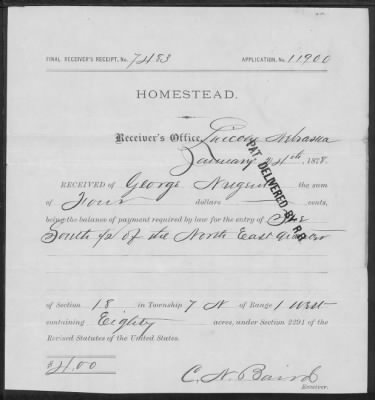 FINAL RECEIVER'S RECEIPT, No. 7483 APPLICATION, No. 11900
HOMESTEAD.
Receiver's Office, Lincoln Nebraska
January 24th, 1878.
RECEIVED of George Nugent the sum
of Four dollars cents,
being the balance of payment required by law for the entry of The
South ½ of the North East quarter
PAT DELIVERED BY R.R.
of Section 18 in Township 7 N of Range 1 West
containing Eighty acres, under Section 2291 of the
Revised Statutes of the United States.
$4.00
C. N. Baird
Receiver.